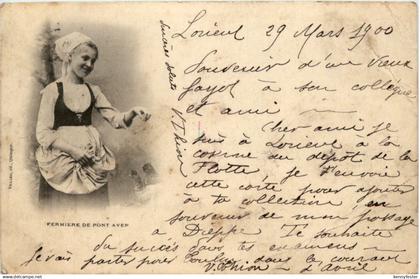 Lorient 29 Mars 1900
Souvenir d'un vieux
fayot à son collègue
et ami
Cher ami je
suis à Lorient à la
caserne du dépôt de la
Flotte je t'envoie
cette carte pour ajouter
à ta collection en
souvenir de mon passage
à Dieppe Te souhaite
du succès dans tes examens
Je vais partir pour Toulon dans le courant
V. Thion d'Avril
V Thion
FERMIERE DE PONT AVEN
VILLARD, éd., Quimper
www.delcampe.net